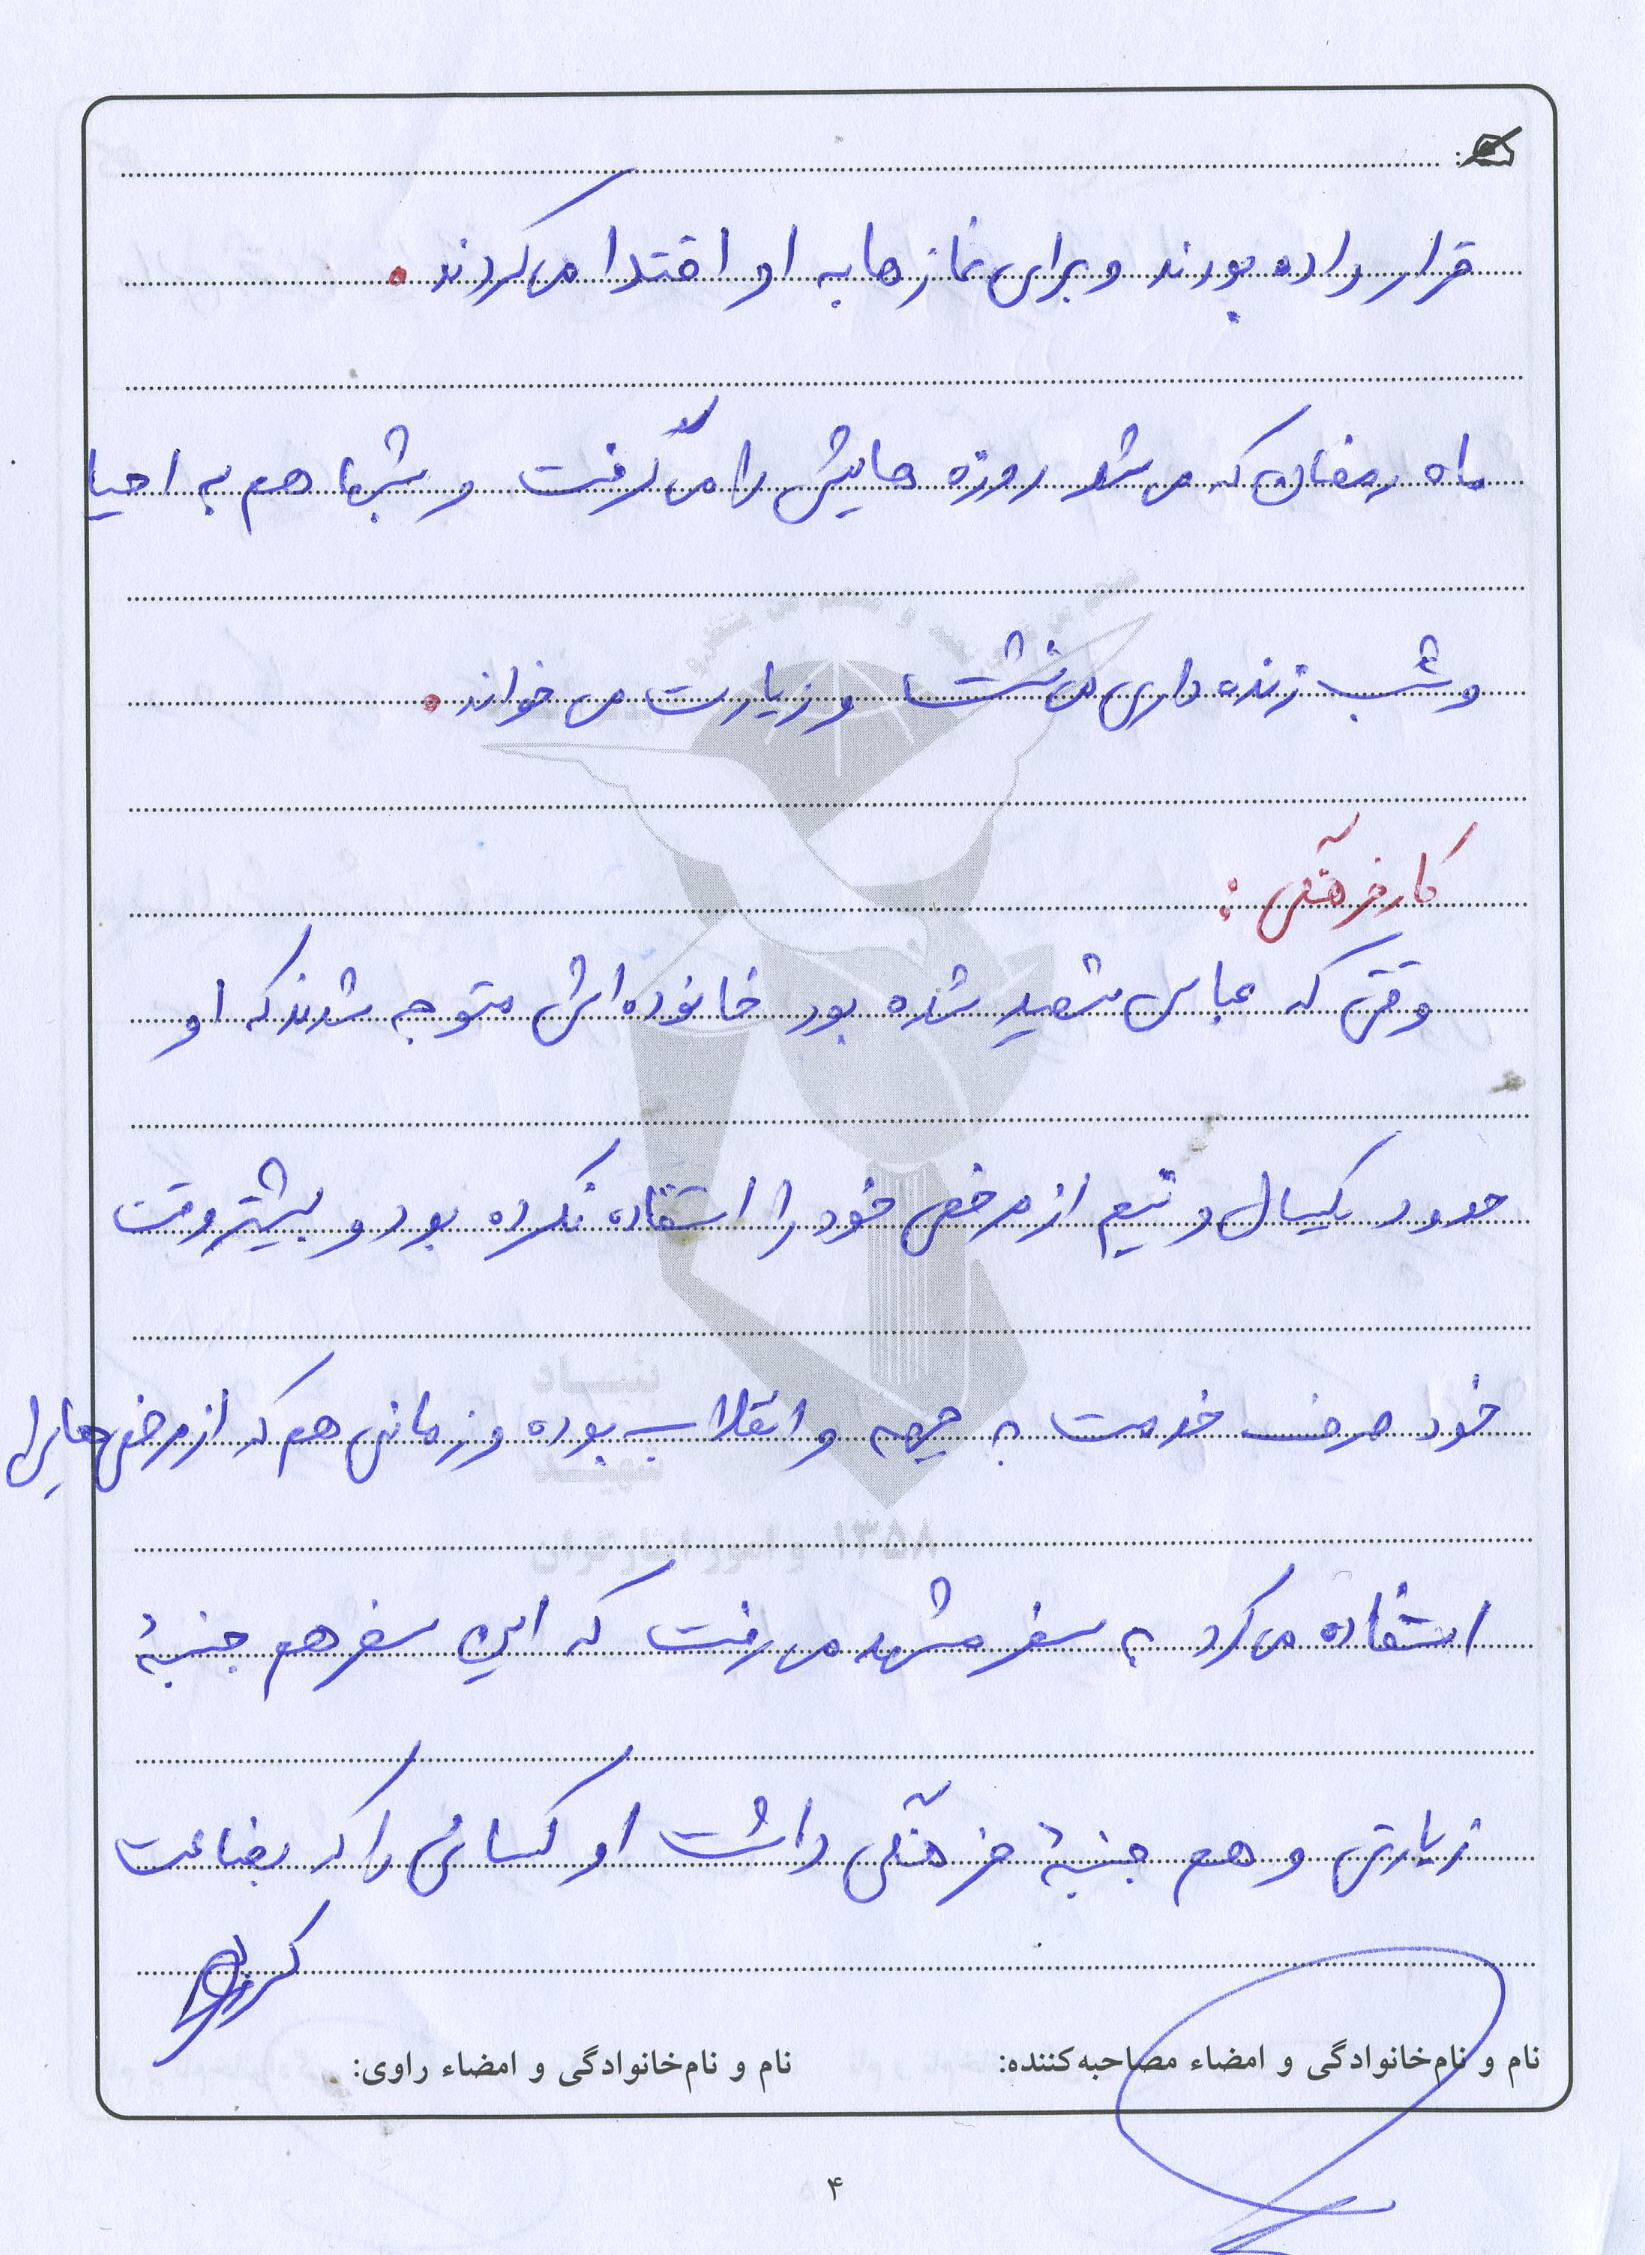 قرار داده بودند و برای نمازها به او اقتدا می‌کردند.
ماه رمضان که می‌شد روزه هایش را می‌گرفت و شبها هم به احیا
و شب زنده داری می‌نشست و زیارت می‌خواند.
کار فرهنگی:
وقتی که عباس شهید شده بود خانوده‌اش متوجه شدند که او
حدود یکسال و نیم از مرخصی خود را استفاده نکرده بود و بیشتر وقت
خود صرف خدمت به جبهه و انقلاب بوده و زمانی هم که از مرخصی‌هایش
استفاده می‌کرد به سفر مشهد می‌رفت که این سفر هم جنبهٔ
زیارتی و هم جنبهٔ فرهنگی داشت او کسانی را که بضاعت
نام و نام‌خانوادگی و امضاء مصاحبه‌کننده:
نام و نام‌خانوادگی و امضاء راوی:
۴
بنیاد
شهید
و امور ایثارگران
۱۳۵۸